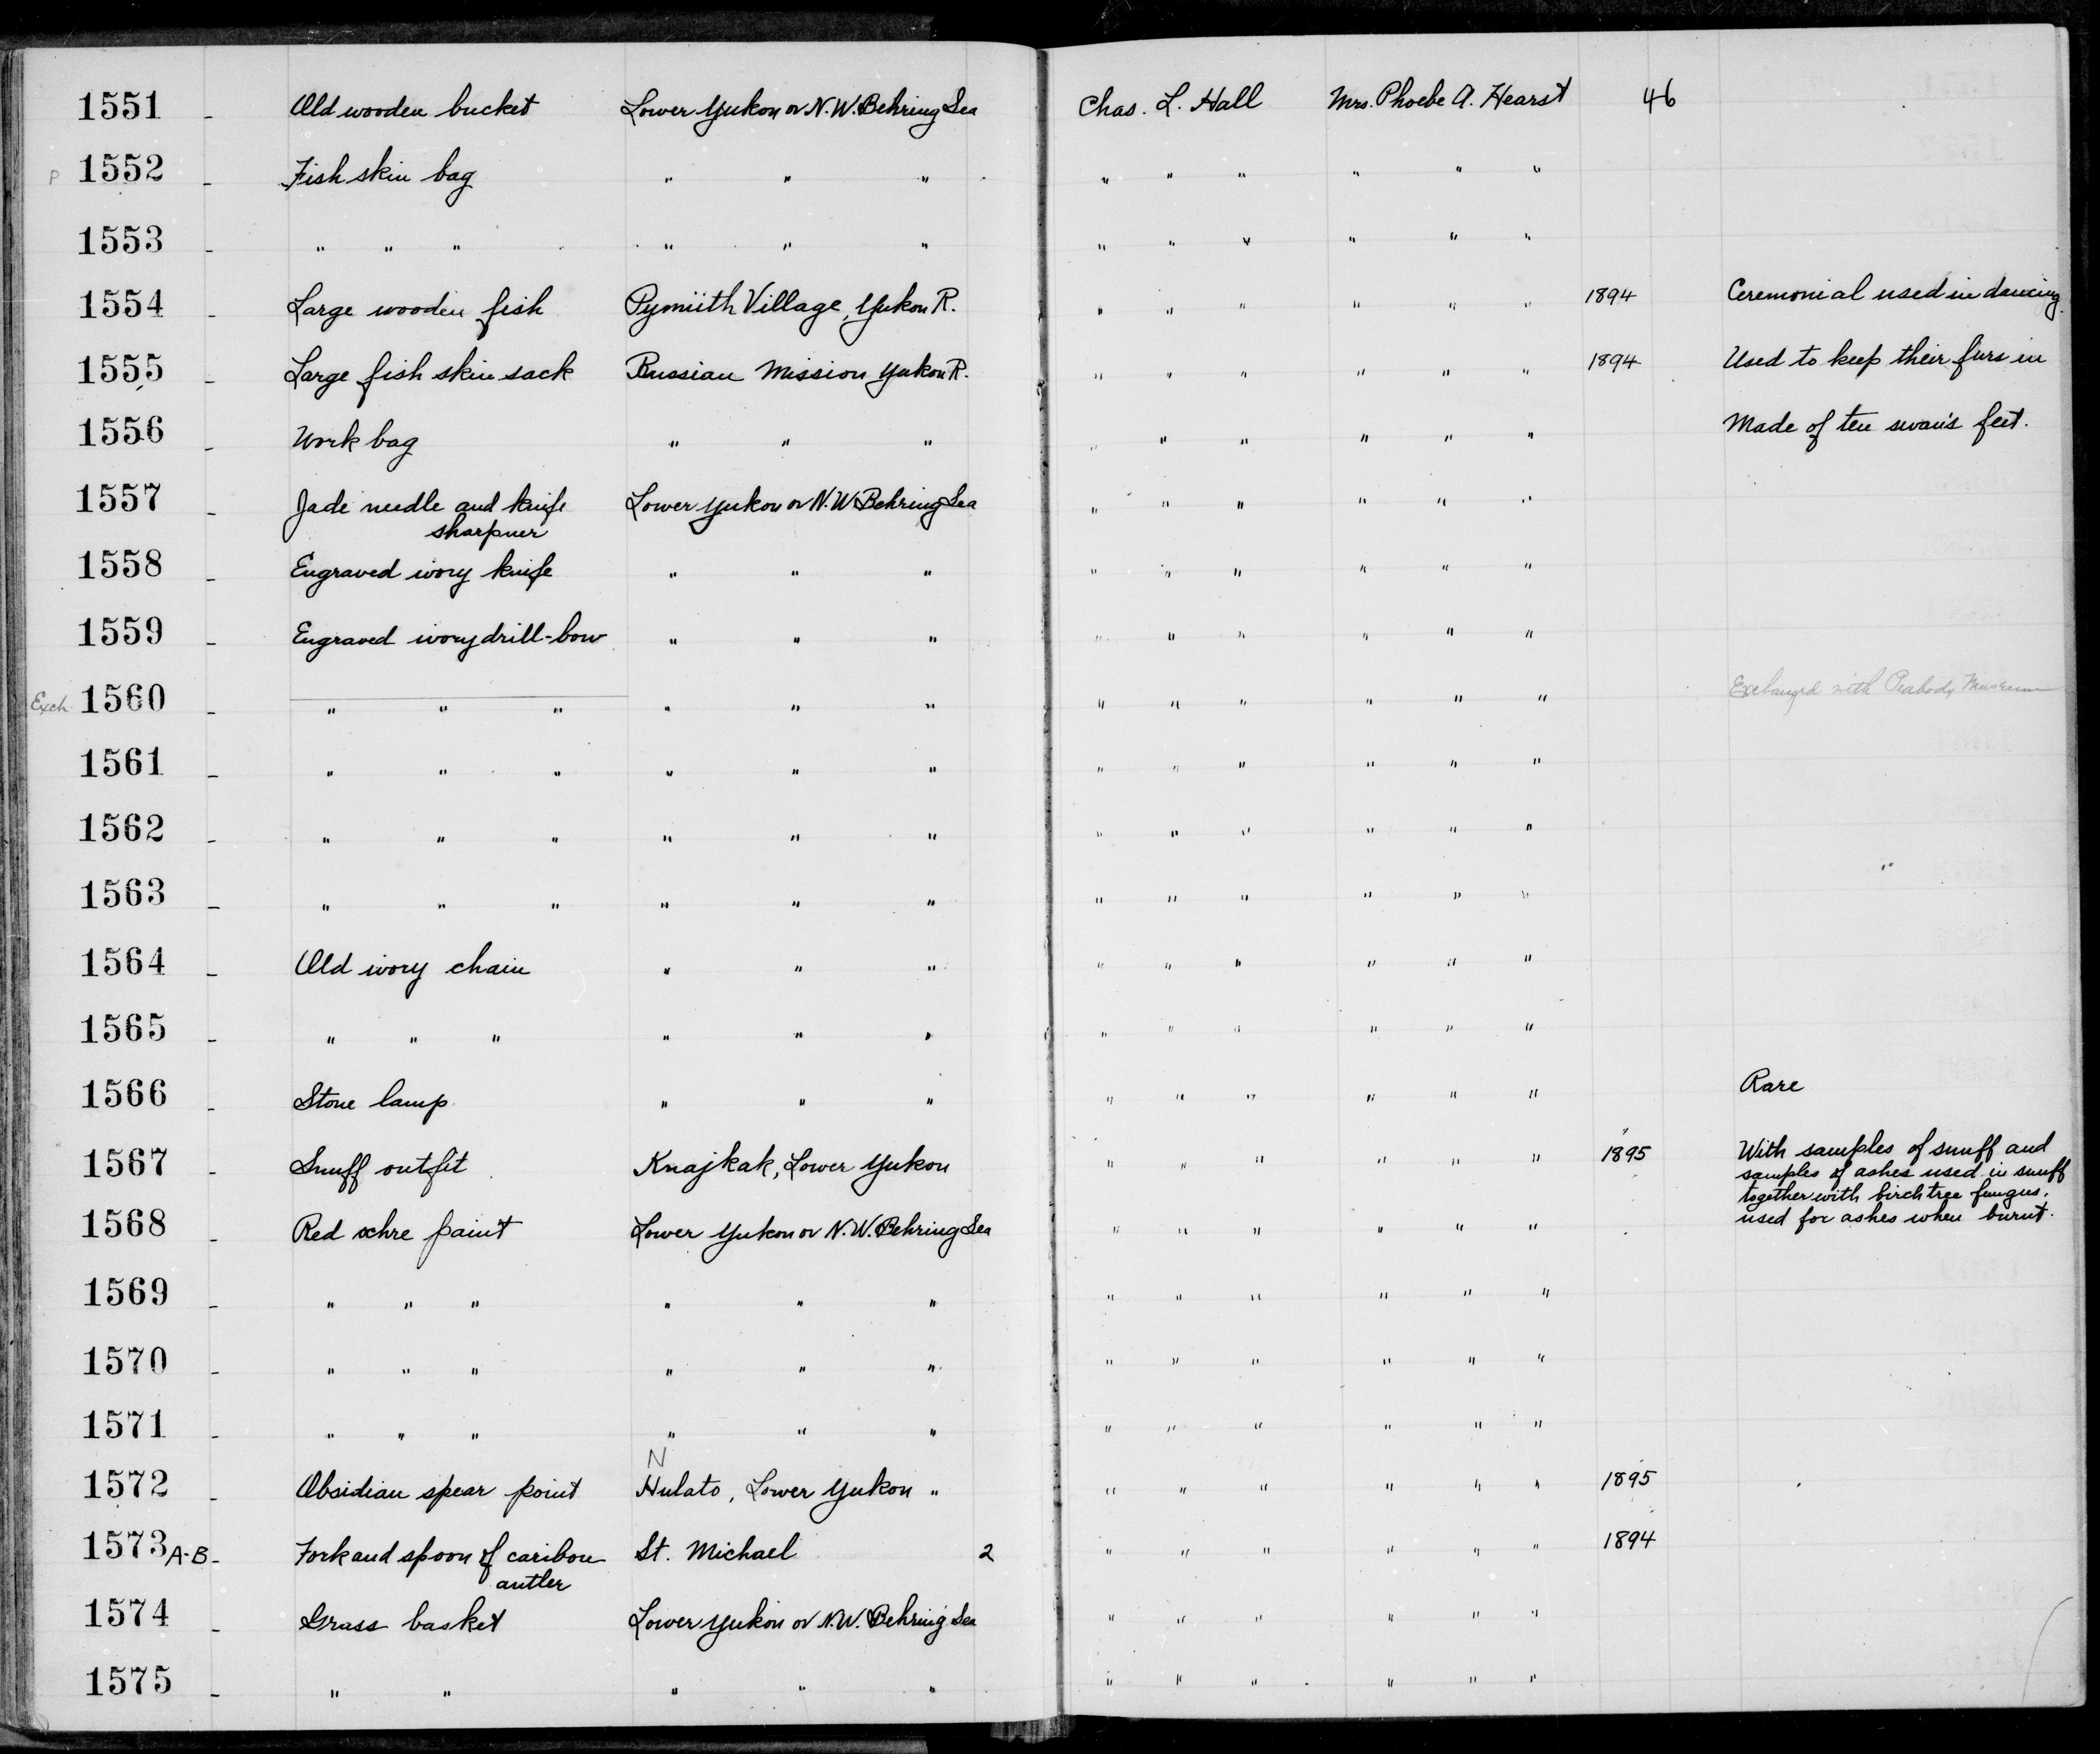 1551 - Old wooden bucket Lower Yukon or N.W. Behring Sea Chas. L. Hall Mrs. Phoebe A. Hearst 46
P 1552 - Fish skin bag " " " " " " " " "
1553 - " " " " " " " " " " " "
1554 - Large wooden fish Pymiith Village, Yukon R. " " " " " " 1894 Ceremonial used in dancing.
1555 - Large fish skin sack Russian Mission Yukon R. " " " " " " 1894 Used to keep their furs in
1556 - Work bag " " " " " " " " " Made of ten swan's feet.
1557 - Jade needle and knife Lower Yukon or N.W. Behring Sea " " " " " "
sharpner
1558 - Engraved ivory knife " " " " " " " " "
1559 - Engraved ivory drill-bow " " " " " " " " "
Exch. 1560 - " " " " " " " " " " " " Exchanged with Peabody Museum
1561 - " " " " " " " " " " " "
1562 - " " " " " " " " " " " "
1563 - " " " " " " " " " " " "
1564 - Old ivory chain " " " " " " " " "
1565 - " " " " " " " " " " " "
1566 - Stone lamp " " " " " " " " " Rare
1567 - Snuff outfit Knajkak, Lower Yukon " " " " " " 1895 With samples of snuff and
samples of ashes used in snuff
together with birch tree fungus,
used for ashes when burnt.
1568 - Red ochre paint Lower Yukon or N.W. Behring Sea " " " " " "
1569 - " " " " " " " " " " " "
1570 - " " " " " " " " " " " "
1571 - " " " " " " " " " " " "
N
1572 - Obsidian spear point Hulato, Lower Yukon " " " " " " " 1895
1573 A-B - Fork and spoon of caribou St. Michael 2 " " " " " " 1894
antler
1574 - Grass basket Lower Yukon or N.W. Behring Sea " " " " " "
1575 - " " " " " " " " " " "